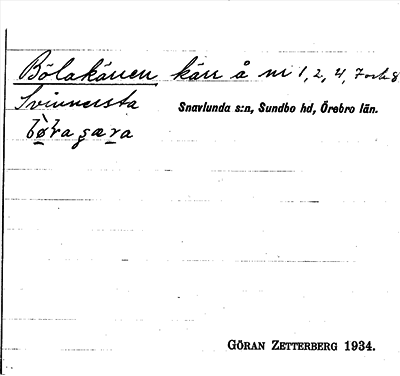 Bölakärren kärr å nr 1, 2, 4, 7 och 8
Svinnersta Snavlunda s:n, Sundbo hd, Örebro län.
GÖRAN ZETTERBERG 1934.